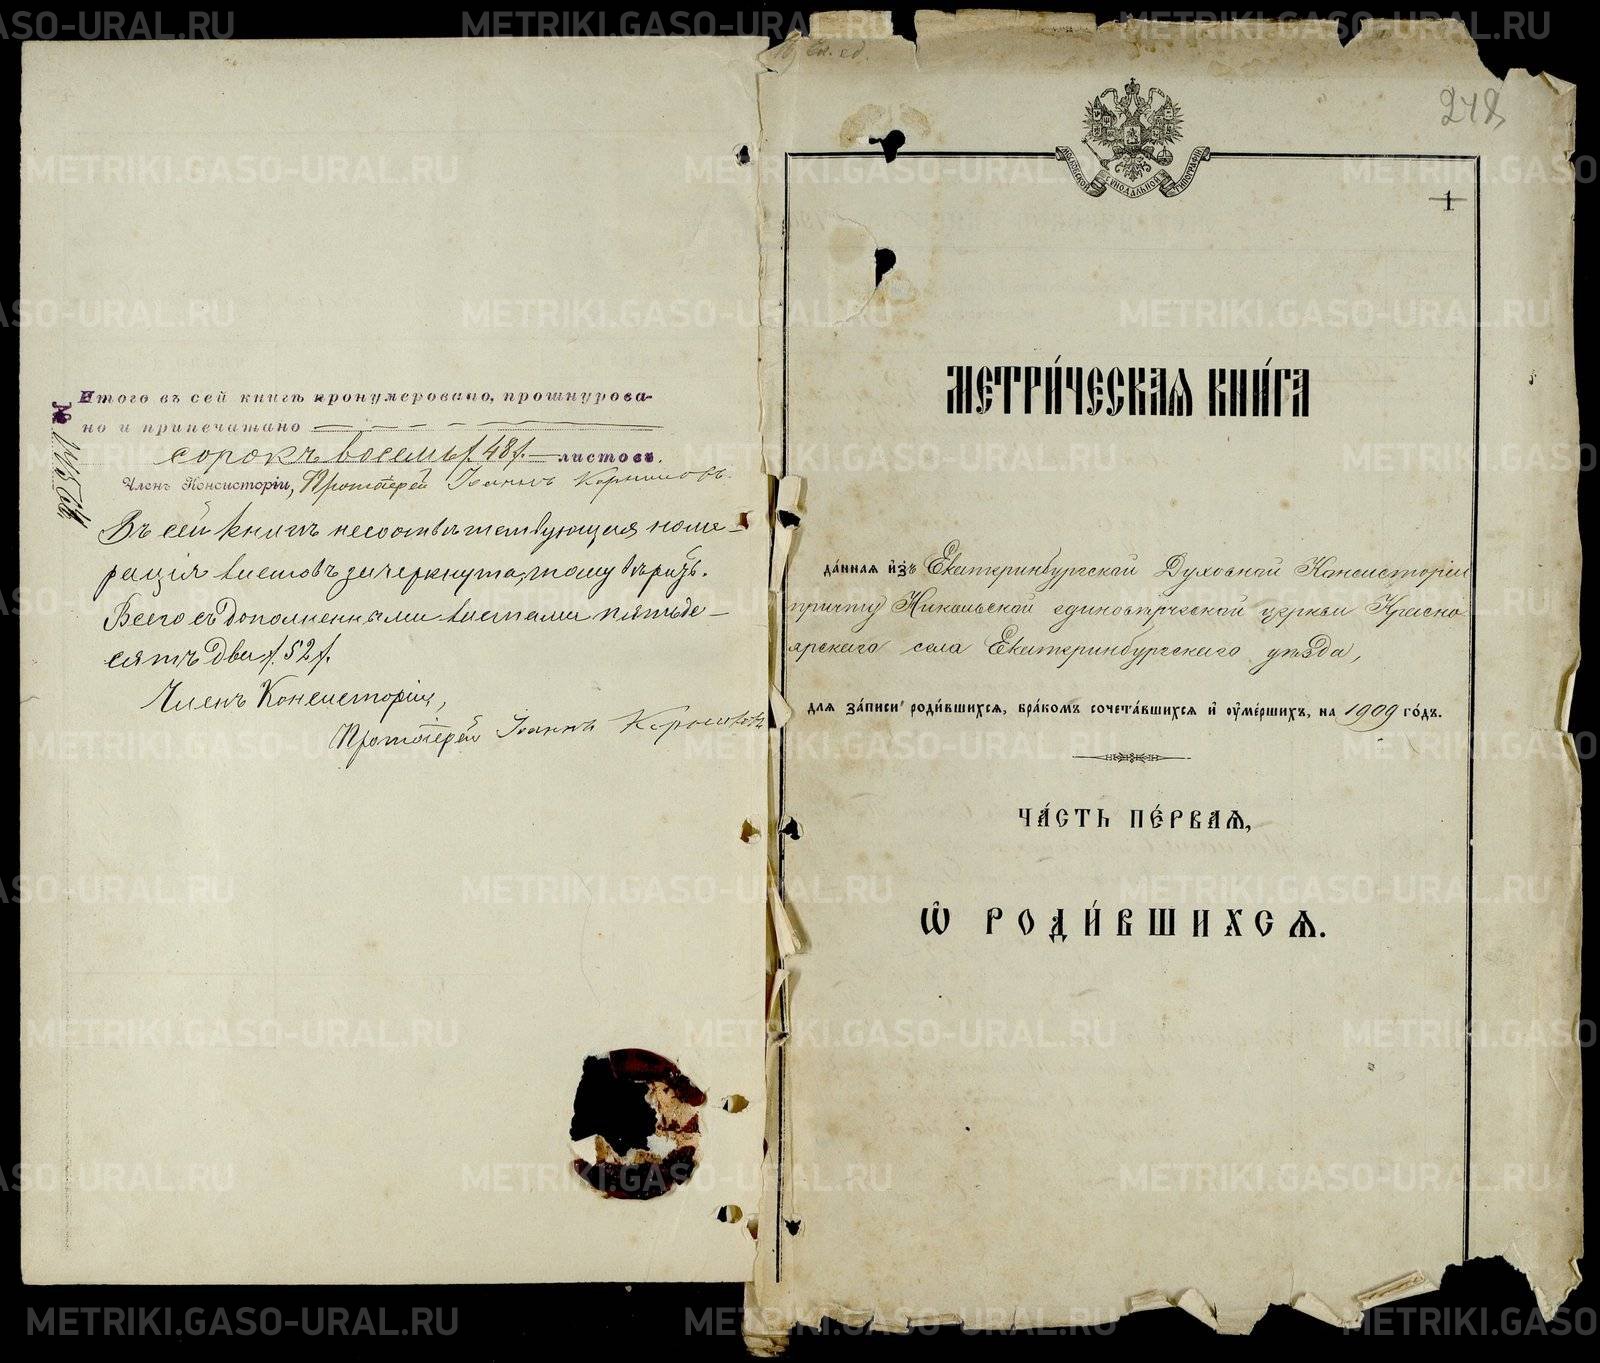 Итого въ сей книгѣ пронумеровано, прошнурова-
но и припечатано
сорокъ восемь /.48/. листовъ.
Членъ Консисторіи, Протоіерей Іоаннъ
№
Въ сей книгѣ несоотвѣтствующая номе-
рація листовъ зачеркнута, тому вѣрить.
Всего съ дополненными листами пятьде-
сятъ два /.52/.
Членъ Консисторіи,
Протоіерей Іоаннъ
МОСКОВСКОЙ СѴНОДАЛЬНОЙ ТИПОГРАФІИ
1
МЕТРИ́ЧЕСКАѦ КНИ́ГА
да́ннаѧ и҆зъ Екатеринбургской Духовной Консисторіи
причту Никольской единовѣрческой церкви Красно-
ярскаго села Екатеринбургскаго уѣзда,
для за́писи роди́вшихсѧ, бра́комъ сочета́вшихсѧ и҆ ᲂу҆ме́ршихъ, на 1909 го́дъ.
ЧА́СТЬ ПЕ́РВАѦ,
Ѡ҆ РОДИ́ВШИХСѦ.
METRIKI.GASO-URAL.RU